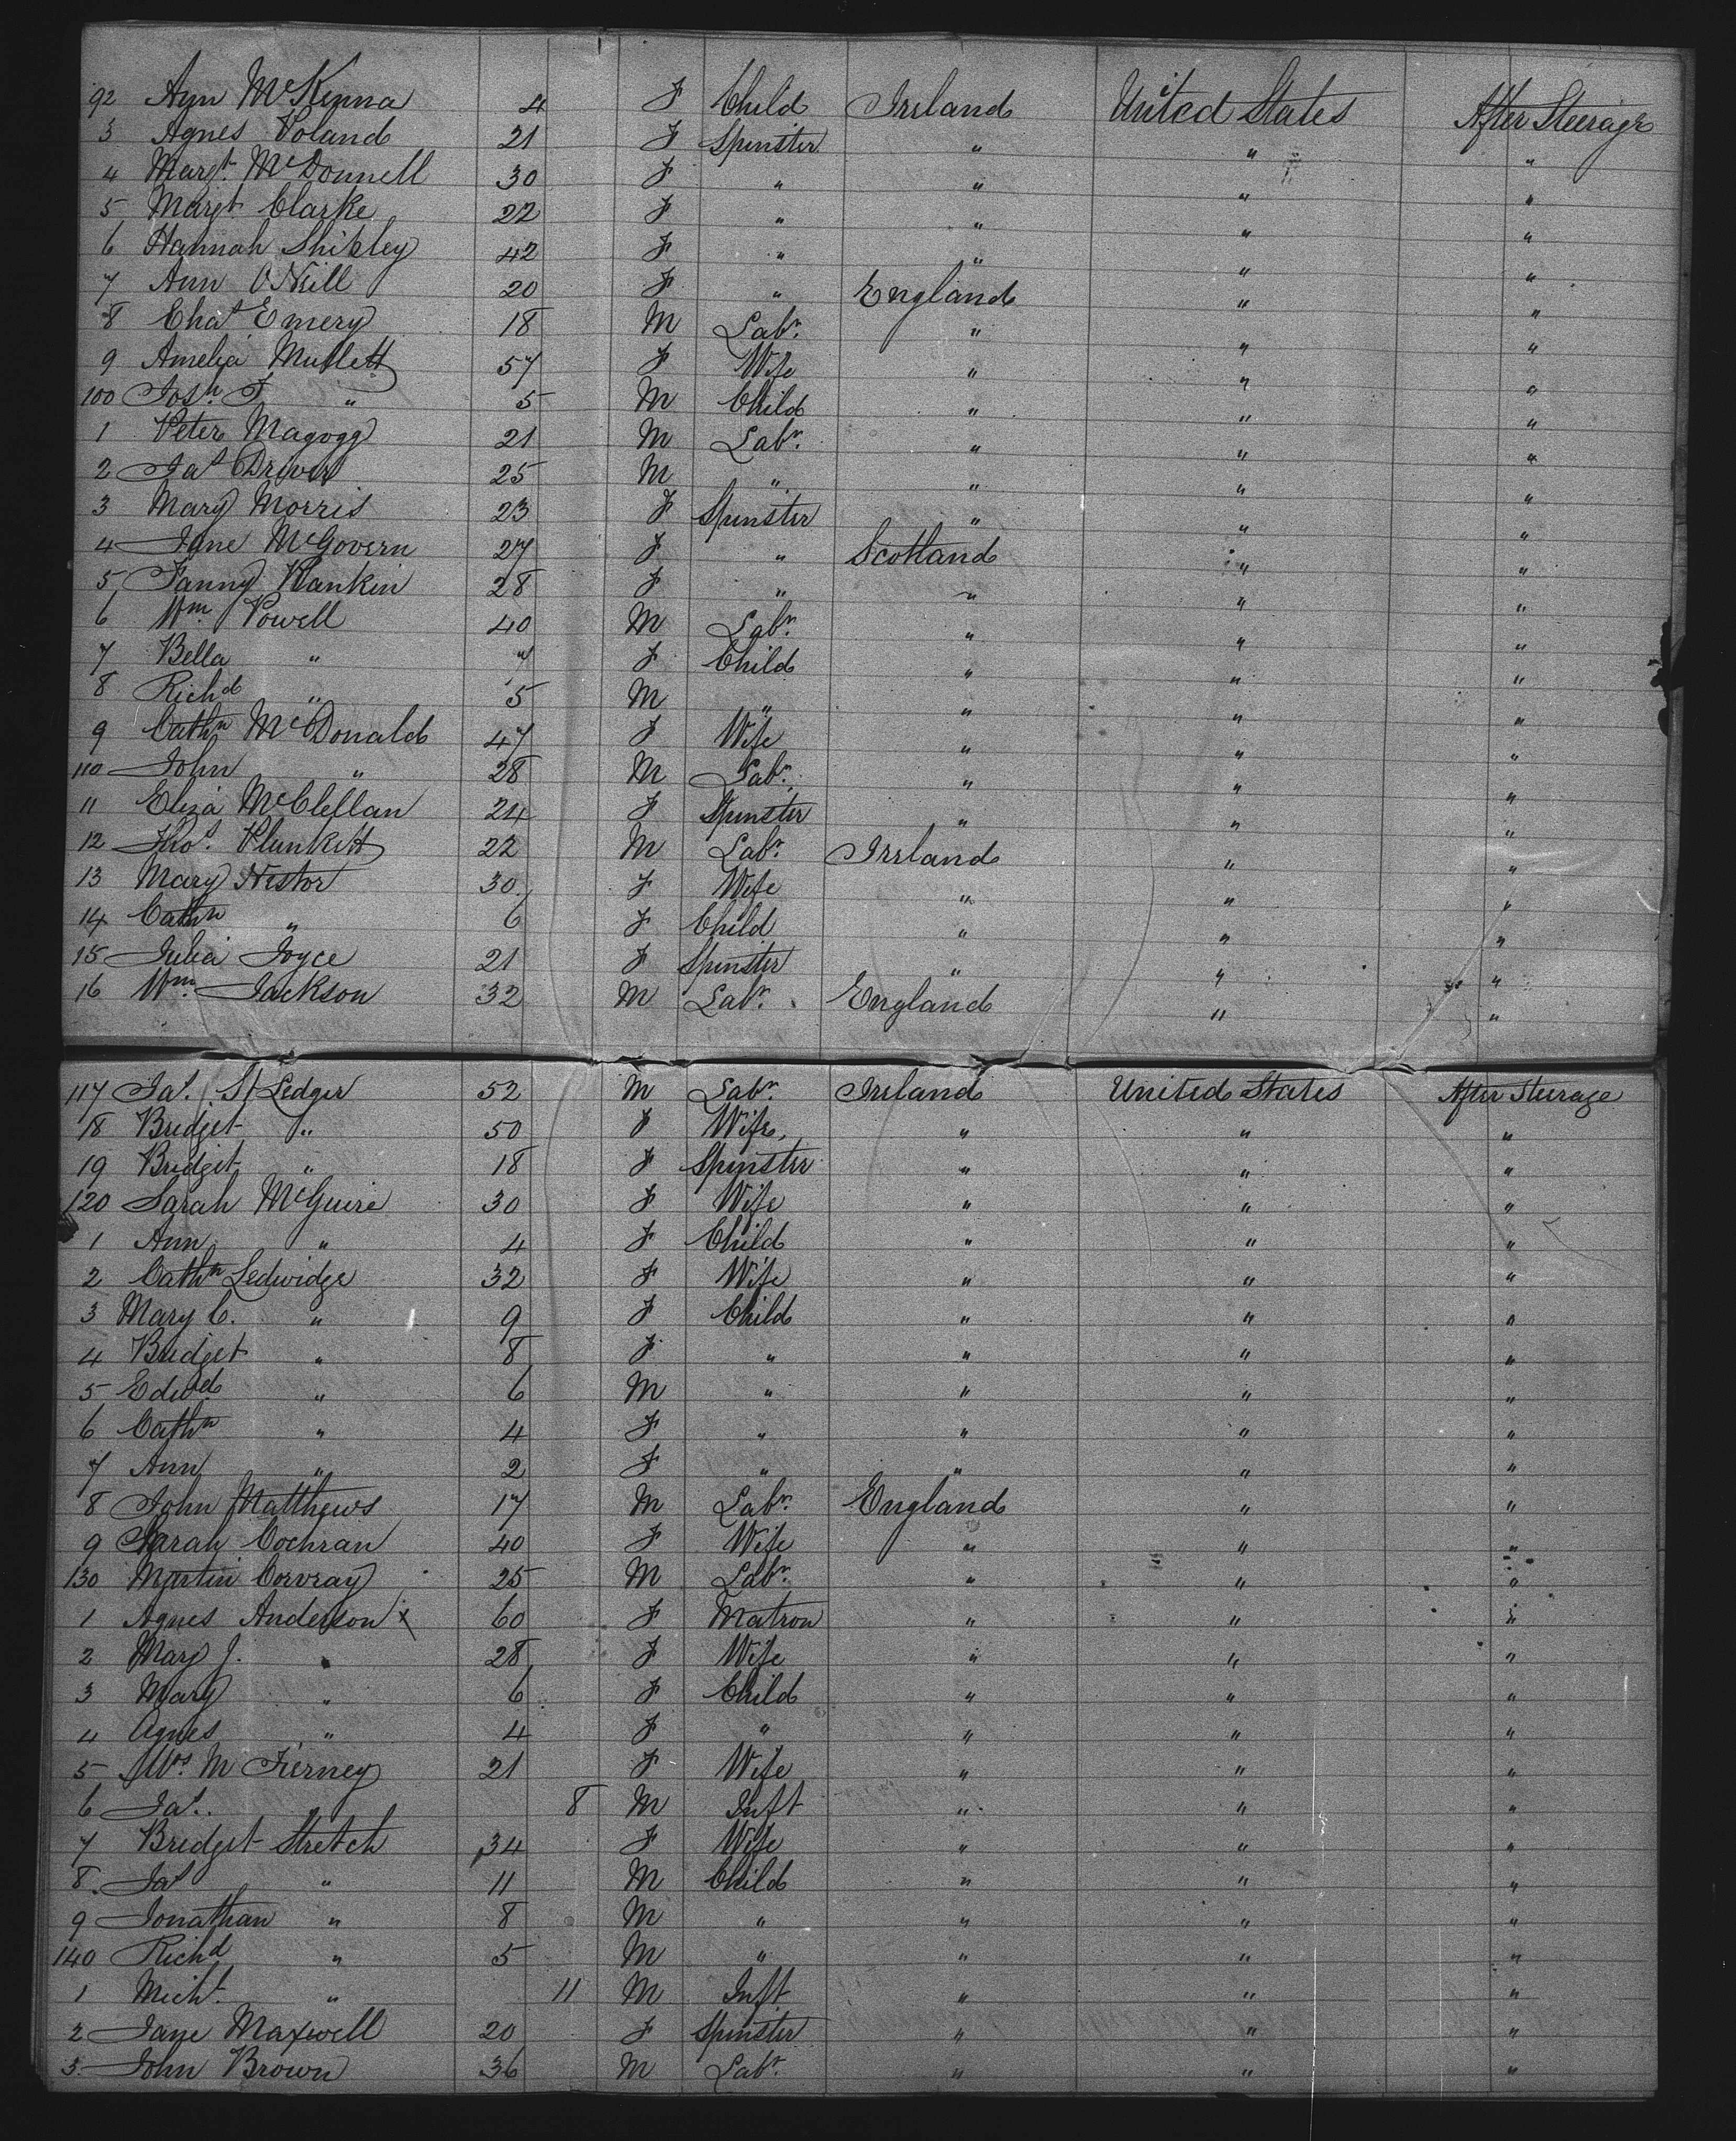 92 Ann McKenna 4 F Child Ireland United States After Steerage
3 Agnes Boland 21 F Spinster " " "
4 Margt. McDonnell 30 F " " " "
5 Margt Clarke 22 F " " " "
6 Hannah 42 F " " " "
7 Ann O'Neill 20 F " England " "
8 Chas Emery 18 M Labr. " " "
9 Amelia Mullett 57 F Wife " " "
100 Josh. F " 5 M Child " " "
1 Peter Magogg 21 M Labr. " " "
2 Jas Driver 25 M " " " "
3 Mary Morris 23 F Spinster " " "
4 Jane McGovern 27 F " Scotland " "
5 Fanny Rankin 28 F " " " "
6 Wm. Powell 40 M Labr. " " "
7 Bella " 7 F Child " " "
8 Richd " 5 M " " " "
9 Cathn McDonald 47 F Wife " " "
110 John " 28 M Labr. " " "
11 Eliza McClellan 24 F Spinster " " "
12 Thos. Plunkett 22 M Labr. Ireland " "
13 Mary Nestor 30 F Wife " " "
14 Cathn " 6 F Child " " "
15 Julia Joyce 21 F Spinster " " "
16 Wm. Jackson 32 M Labr. England " "
117 Jas. St Ledger 52 M Labr. Ireland United States After Steerage
18 Bridget " 50 F Wife, " " "
19 Bridget " 18 F Spinster " " "
120 Sarah McGuire 30 F Wife " " "
1 Ann " 4 F Child " " "
2 Cathn Ledwidge 32 F Wife " " "
3 Mary C. " 9 F Child " " "
4 Bridget " 8 F " " " "
5 Edwd " 6 M " " " "
6 Cathn " 4 F " " " "
7 Ann " 2 F " " " "
8 John Matthews 17 M Labr. England " "
9 Sarah Cochran 40 F Wife " " "
130 Martin Corvray 25 M Labr. " " "
1 Agnes Anderson x 60 F Matron " " "
2 Mary J. " 28 F Wife " " "
3 Mary " 6 F Child " " "
4 Agnes " 4 F " " " "
5 Mrs. M Tierney 21 F Wife " " "
6 Jas. " 8 M Inft " " "
7 Bridget Stretch 34 F Wife " " "
8 Jas " 11 M Child " " "
9 Jonathan " 8 M " " " "
140 Richd " 5 M " " " "
1 Michl. " 11 M Inft " " "
2 Jane Maxwell 20 F Spinster " " "
3 John Brown 36 M Labr. " " "